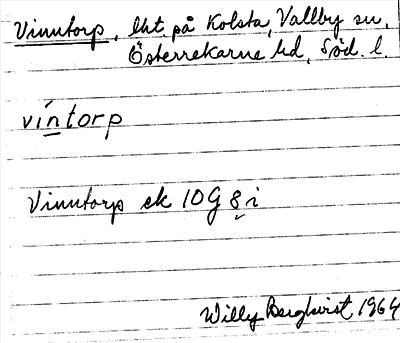 Vinntorp, lht på Kolsta, Vallby sn,
Österrekarne hd, Söd. l.
víntorp
Vinntorp ek 10G 8 i
Willy Bergkvist 1964